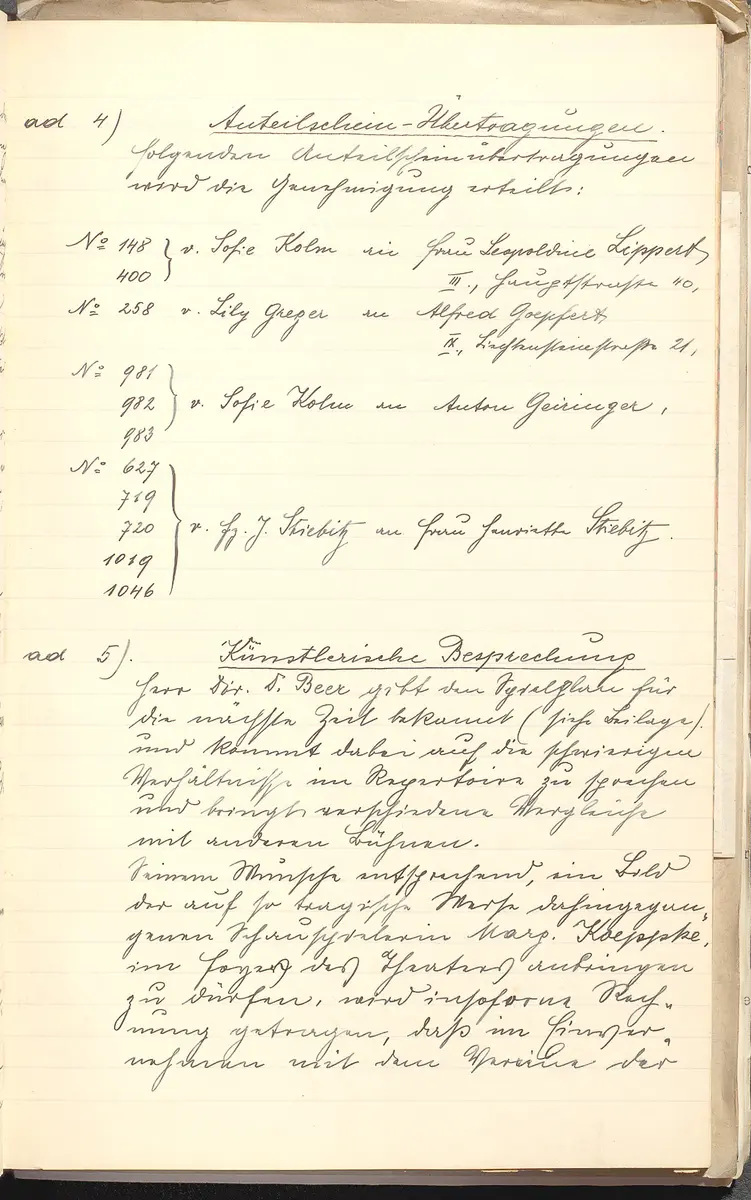 ad 4) Anteilschein-Übertragungen.
Folgenden Anteilscheinübertragungen
wird die Genehmigung erteilt:
No 148 } v. Sofie Kolm an Frau Leopoldine Lippert,
400 III., Hauptstraße 40,
No 258 v. Lily Greger an Alfred Goepfert,
IX., Liechtensteinstraße 21,
No 981
982 } v. Sofie Kolm an Anton Geiringer,
983
No 627
719
720 } v. Fz. J. Stiebitz an Frau Henriette Stiebitz.
1019
1046
ad 5). Künstlerische Besprechung
Herr Dir. D. Beer gibt den Spielplan für
die nächste Zeit bekannt (siehe Beilage).
und kommt dabei auf die schwierigen
Verhältnisse im Repertoire zu sprechen
und bringt verschiedene Vergleiche
mit anderen Bühnen.
Seinem Wunsche entsprechend, ein Bild
der auf so tragische Weise dahingegan-
genen Schauspielerin Marg. Koeppke,
im Foyer des Theaters anbringen
zu dürfen, wird insoferne Rech-
nung getragen, daß im Einver-
nehmen mit dem Vereine der